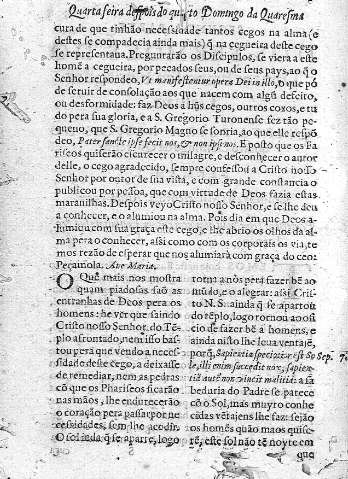 Quarta feira depois do quarto Domingo da Quaresma
cura de que tinhão necessidade tantos cegos na alma (e
destes se compadecia ainda mais) q̃ na cegueira deste cego
se representaua. Preguntarão os Discipulos, se viera a este
homẽ a cegueira, por peccados seus, ou de seus pays, ao q̃ o
Senhor respondeo, Vt manifestentur opera Dei in illo, o que pó
de seruir de consolação aos que nacem com algũ defeito,
ou desformidade: faz Deos a hũs cegos, outros coxos, e tu
do pera sua gloria, e a S. Gregorio Turonense fez tão pe
queno, que S. Gregorio Magno se sorria, ao que elle respõ
deo, Pater sancte ipse fecit nos, & non ipsi nos. E posto que os Fa
riseos quiserão escurecer o milagre, e desconhecer o autor
delle, o cego agradecido, sempre confessou a Cristo nosso
Senhor por autor de sua vista, e com grande constancia o
publicou por pessoa, que com virtude de Deos fazia estas
marauilhas. Despois veyo Cristo nosso Senhor, e se lhe deu
a conhecer, e o alumiou na alma. Pois dia em que Deos a-
lumiou com sua graça este cego, e lhe abrio os olhos da al
ma pera o conhecer, assi como com os corporais os via, te
mos rezão de esperar que nos alumiará com graça do ceo:
Peçamola. Aue Maria.
O Que mais nos mostra
quam piadosas saõ as
entranhas de Deos pera os
homens: he ver que saindo
Cristo nosso Senhor, do Tẽ
plo afrontado, nem isso bas
tou pera que vendo a neces-
sidade deste cego, a deixasse
de remediar, nem as pedras
cõ que os Phariseos ficarão
nas mãos, lhe endurecerão
o coração pera passar por ne
cessidades, sem lhe acodir.
O sol ainda q̃ se aparte, logo
torna a nòs pera fazer bẽ ao
mũdo, e o alegrar: assi Cris-
to N.S. ainda q̃ se apartou
do tẽplo, logo tornou ao ofi
cio de fazer bẽ a homens, e
ainda nisto lhe leua ventajẽ,
porq̃, Sapientia speciosior est So
le, illi enim succedit nox, sapien-
tiã autẽ non vincit malitia: a sa
beduria do Padre se parece
cõ o Sol, mas muyto conhe
cidas vẽtajens lhe faz: sejão
os homẽs quão maos quise-
rẽ, este sol não tẽ noyte em
Sap. 7.
que